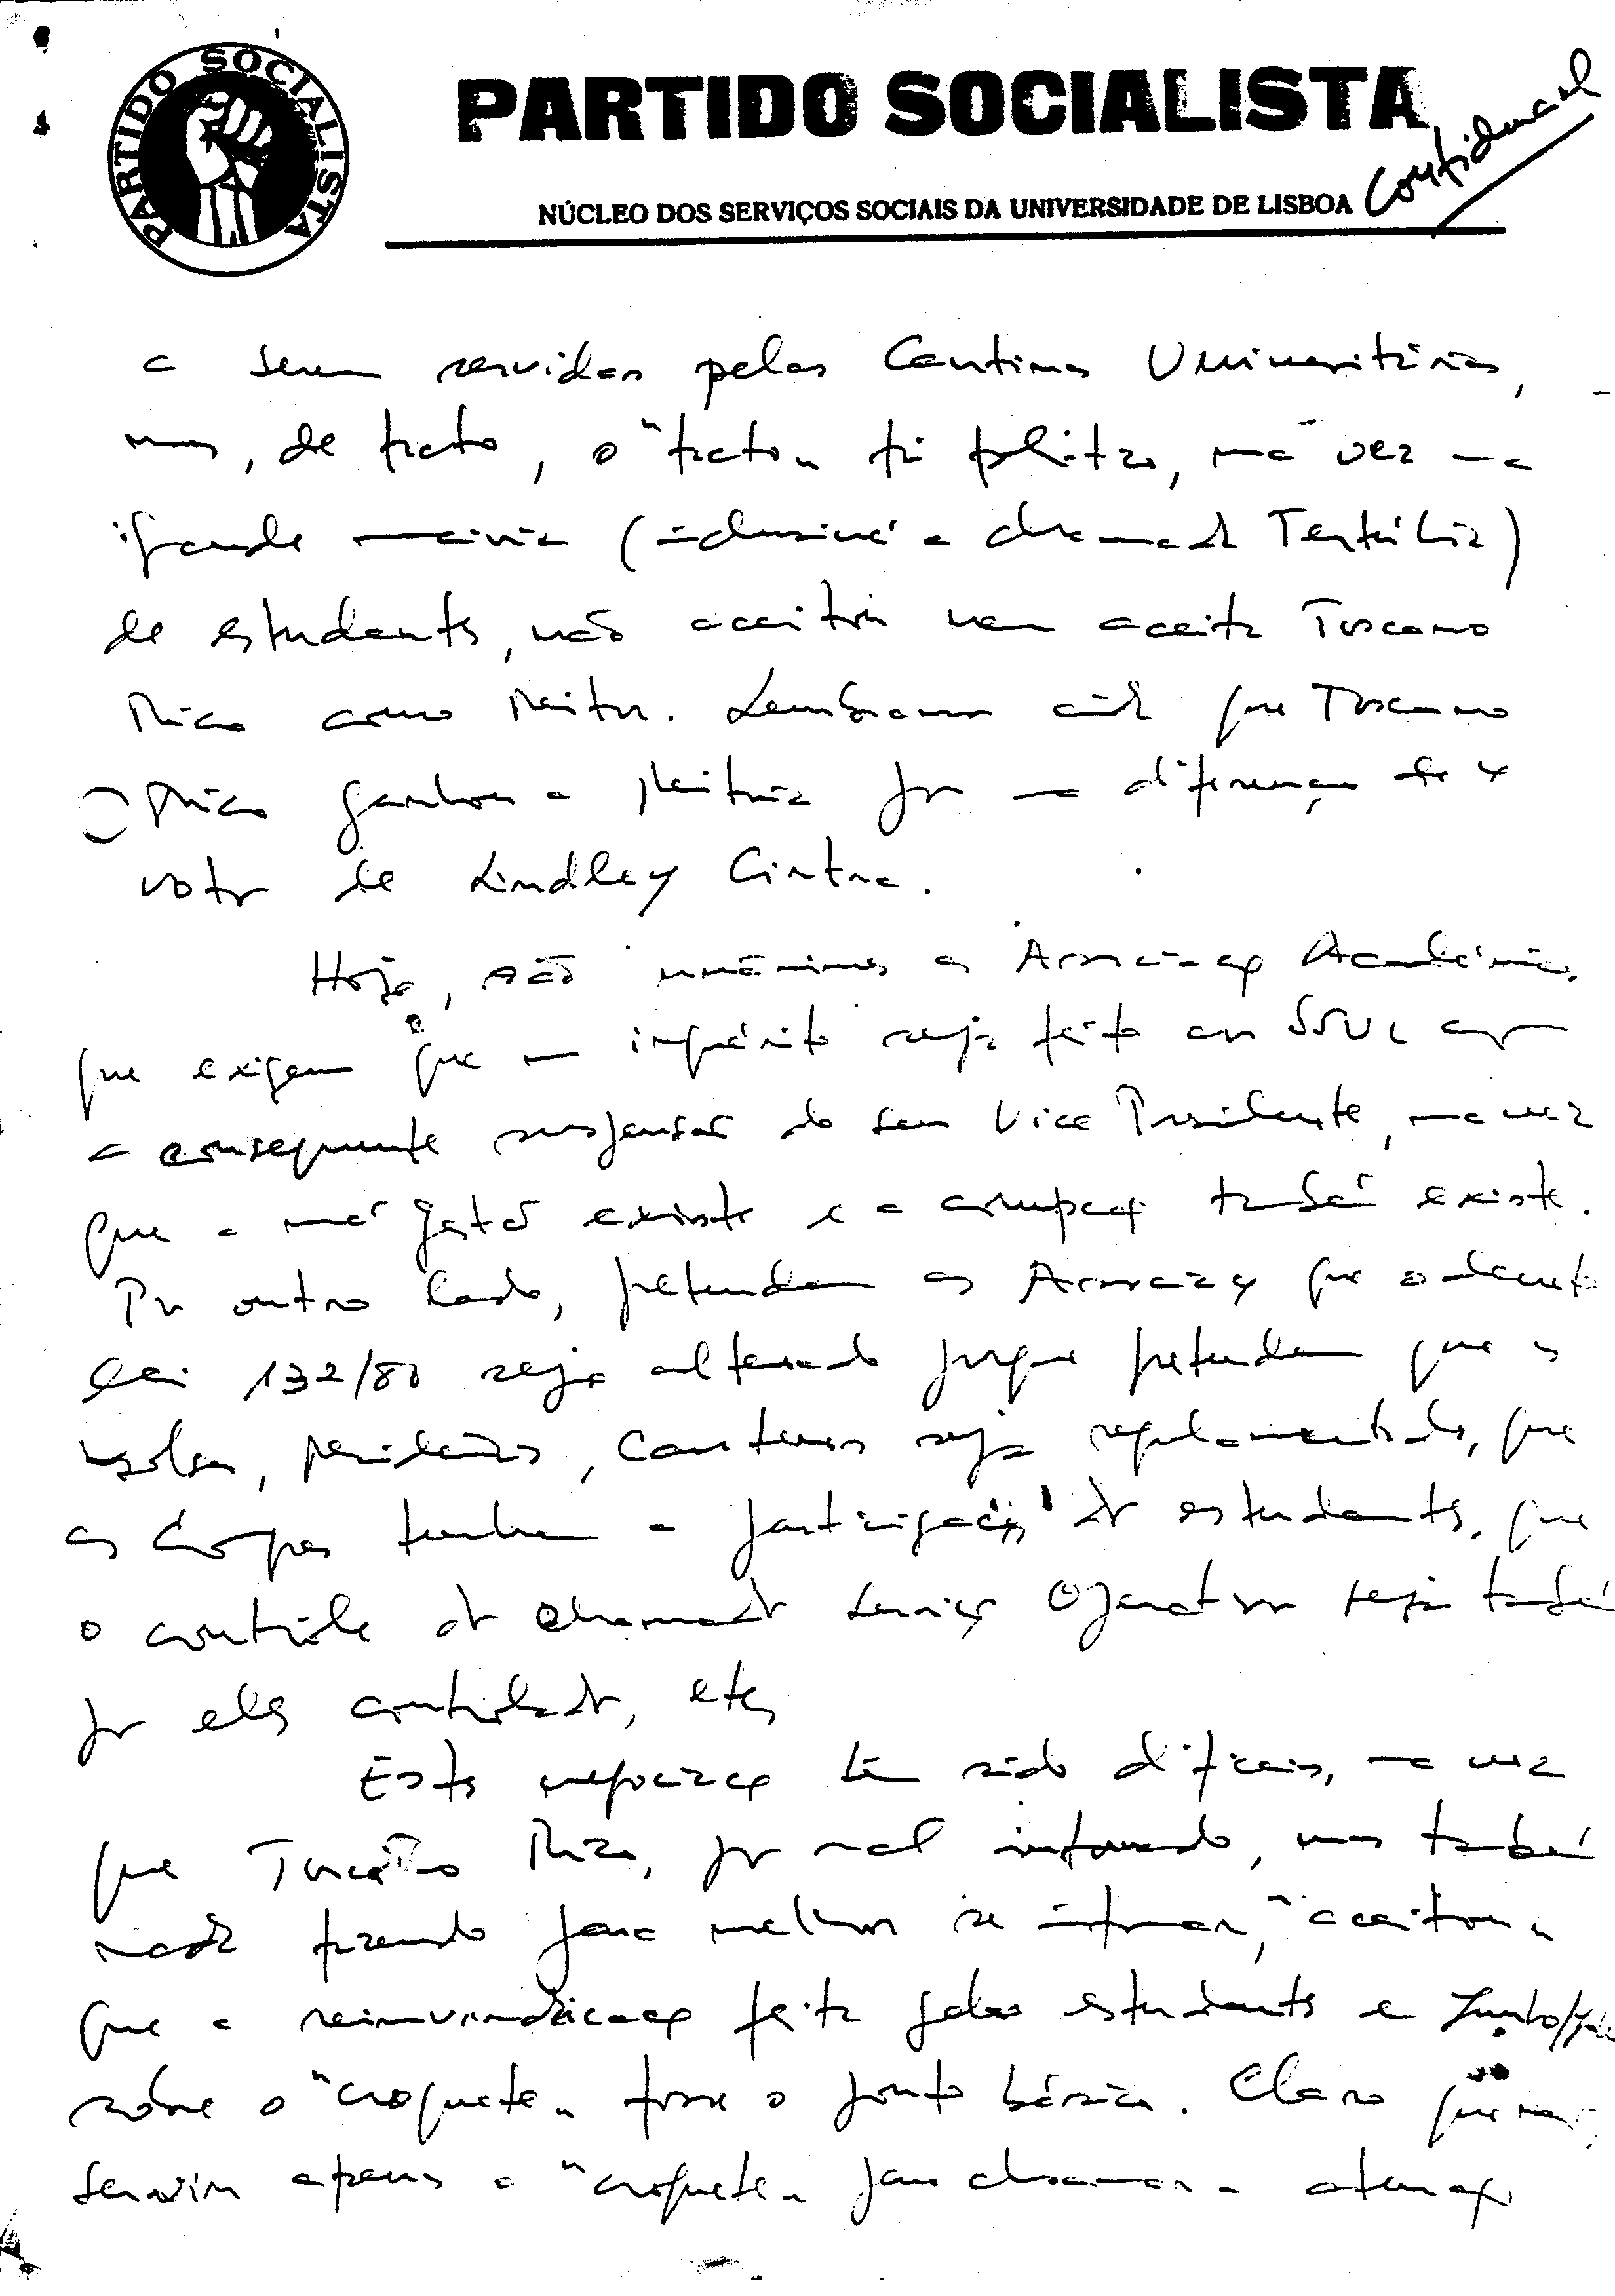 PARTIDO SOCIALISTA
PARTIDO SOCIALISTA
Confidencial
NÚCLEO DOS SERVIÇOS SOCIAIS DA UNIVERSIDADE DE LISBOA
a serem servidas pelas Cantinas Universitárias,
mas, de facto, o "facto" foi político, uma vez que a
grande maioria (inclusivé a chamada Tertúlia)
de estudantes, não aceitou nem aceita Toscano
Rico como Reitor. Lembramos ainda que Toscano
Rico ganhou a Reitoria por uma diferença de 4
votos de Lindley Cintra.
Hoje, são unânimes as Associações Académicas
que exigem que um inquérito seja feito aos SSUL com
a consequente suspensão do seu Vice Presidente, uma vez
que a má gestão existe e a corrupção também existe.
Por outro lado, pretendem as Associações que o decreto
lei 132/80 seja alterado porque pretendem que as
bolsas, residências, cantinas seja regulamentado, que
os Órgãos tenham a participação dos estudantes, que
o contrôle dos chamados serviços Operativos seja também
por eles controlados, etc,
Estas negociações têm sido difíceis, uma vez
que Toscano Rico, por mal informado, mas também
nada fazendo para melhor se informar, "aceitou"
que a reinvindicação feita pelos estudantes em Junho/
sôbre o "croquete" fosse o ponto básico. Claro que
serviu apenas o "croquete" para chamar a atenção